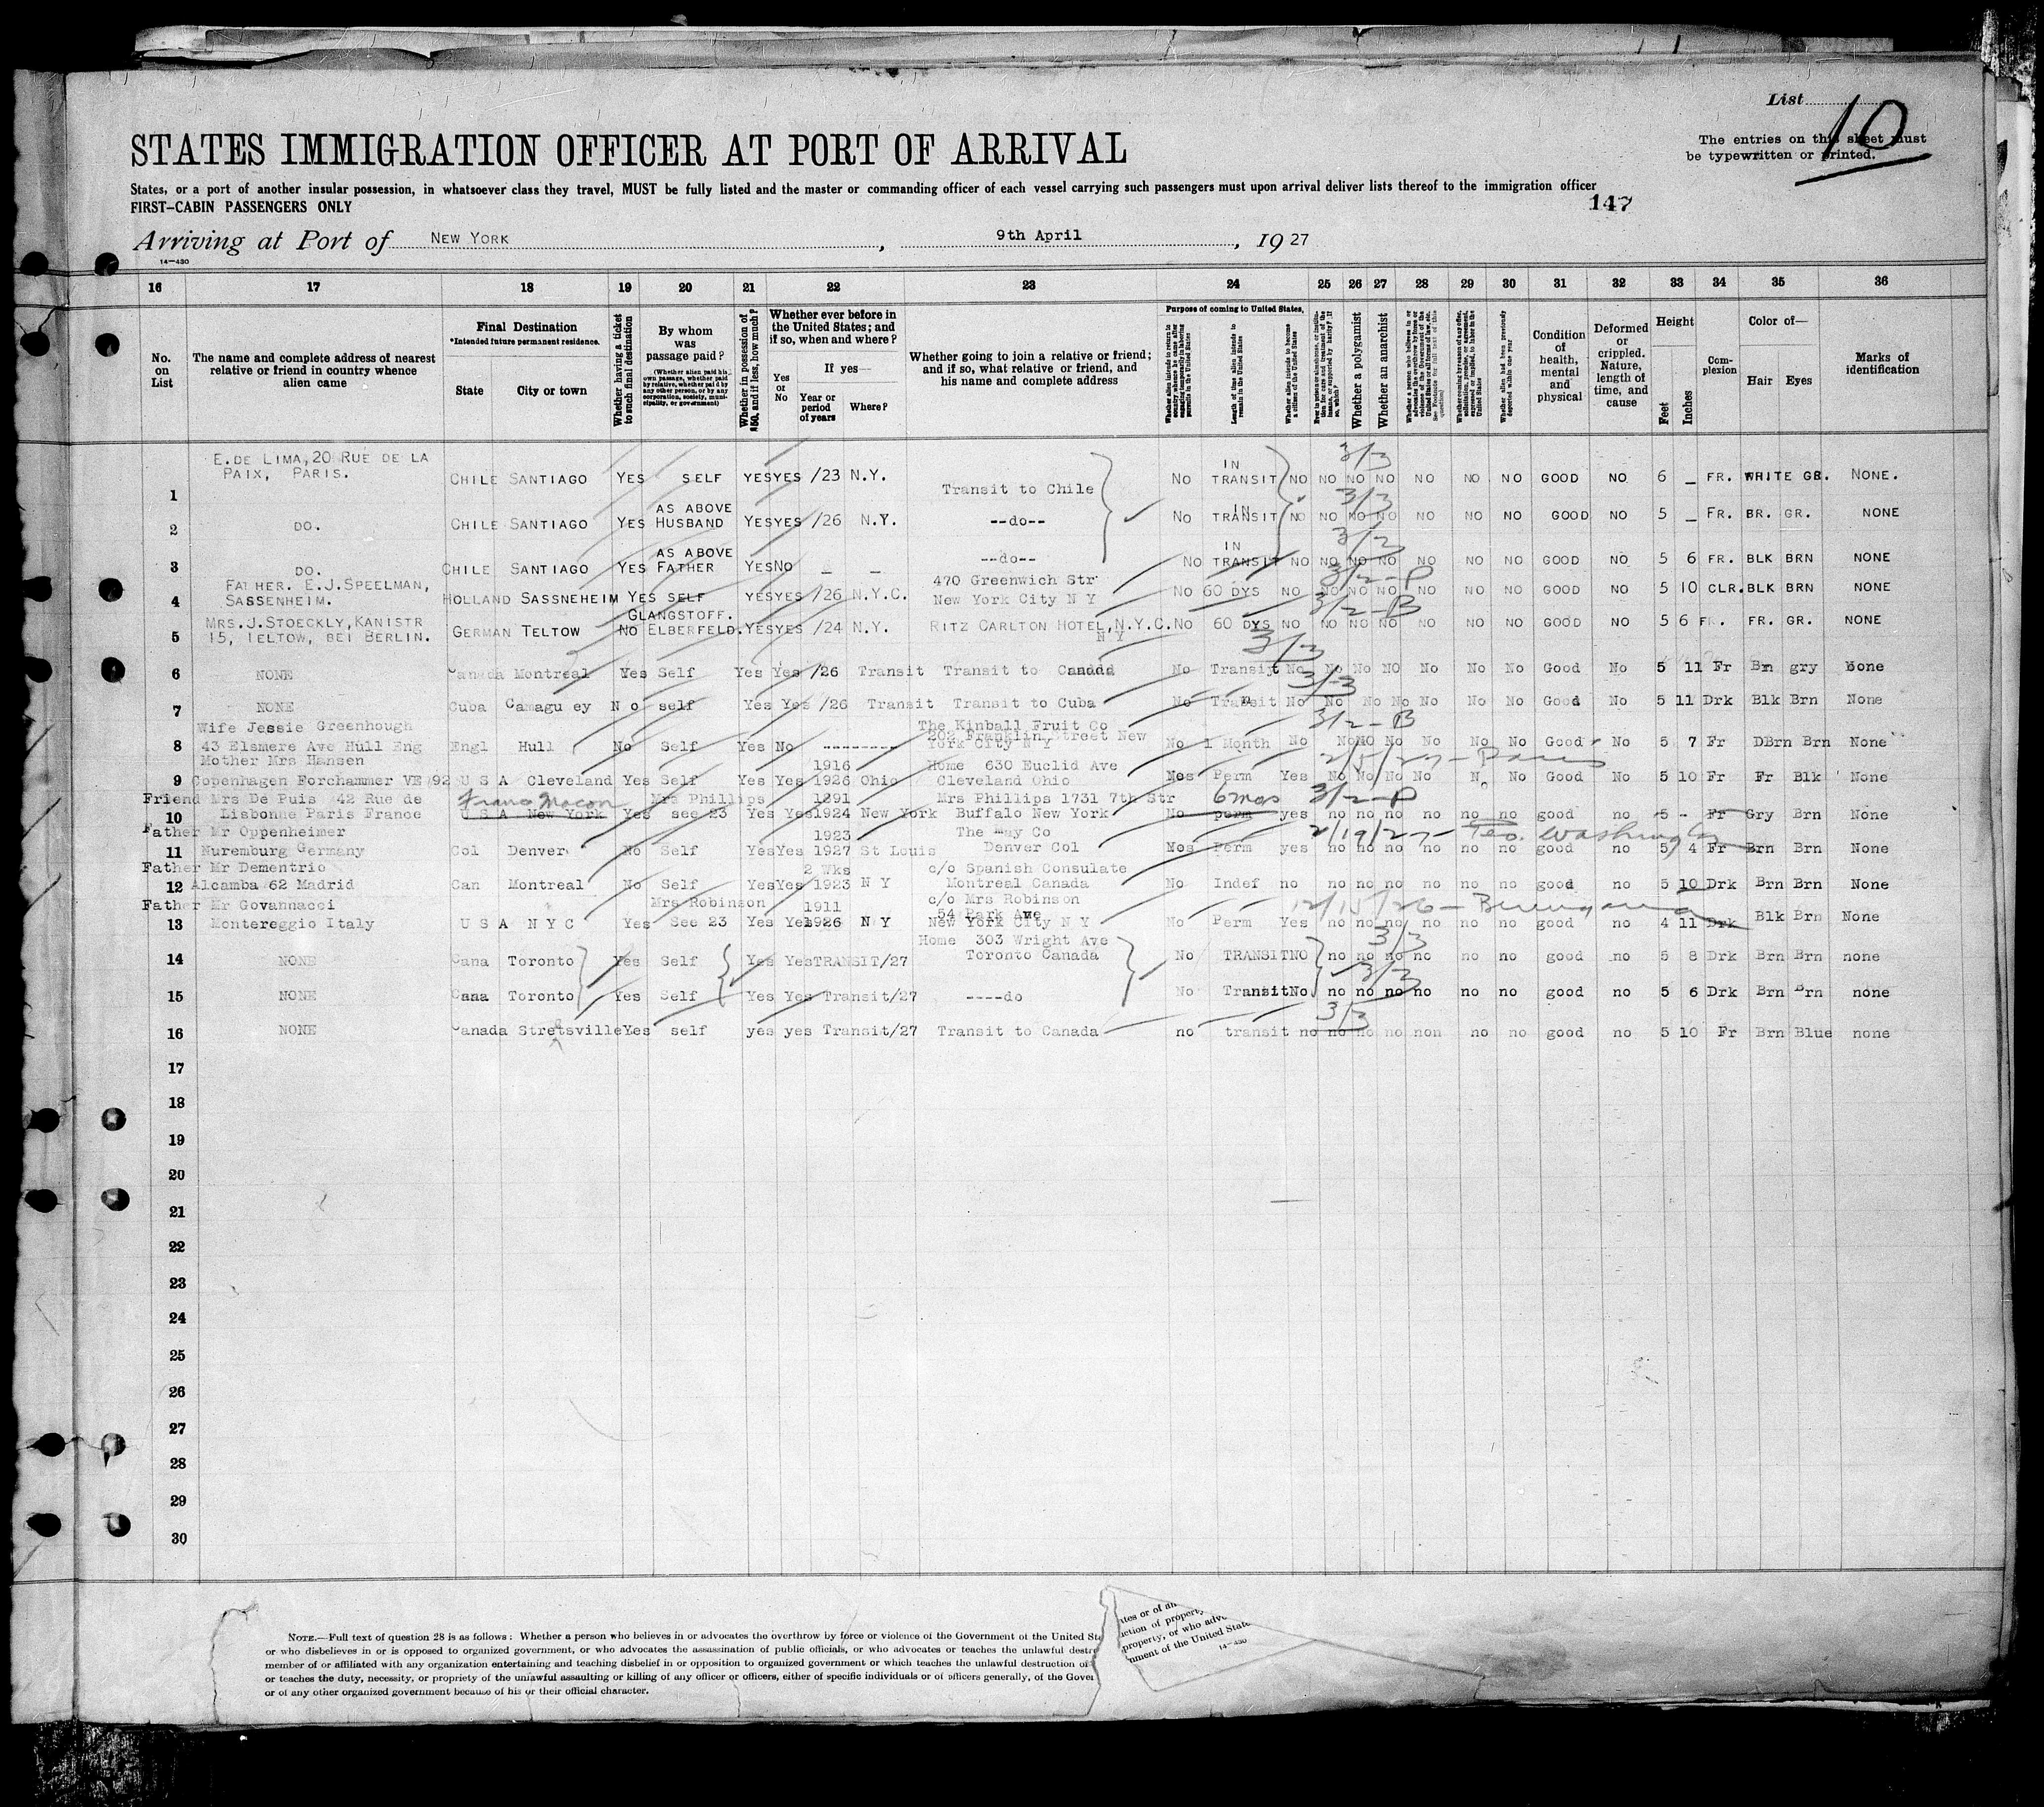 List
10
The entries on this sheet must
be typewritten or printed.
STATES IMMIGRATION OFFICER AT PORT OF ARRIVAL
States, or a port of another insular possession, in whatsoever class they travel, MUST be fully listed and the master or commanding officer of each vessel carrying such passengers must upon arrival deliver lists thereof to the immigration officer
FIRST-CABIN PASSENGERS ONLY
147
Arriving at Port of NEW YORK, 9th April, 1927
14-430
16 17 18 19 20 21 22 23 24 25 26 27 28 29 30 31 32 33 34 35 36
No. on List
The name and complete address of nearest relative or friend in country whence alien came
Final Destination
*Intended future permanent residence.
State City or town
Whether having a ticket to such final destination
By whom was passage paid?
(Whether alien paid his own passage, whether paid by relative, whether paid by any other person, or by any corporation, society, municipality, or government)
Whether in possession of $50, and if less, how much?
Whether ever before in the United States; and if so, when and where?
Yes or No
If yes—
Year or period of years
Where?
Whether going to join a relative or friend; and if so, what relative or friend, and his name and complete address
Purpose of coming to United States,
Length of time alien intends to remain in the United States
Whether alien intends to become a citizen of the United States
Whether a polygamist
Whether an anarchist
Whether alien had been previously deported within one year
Condition of health, mental and physical
Deformed or crippled. Nature, length of time, and cause
Height
Feet Inches
Complexion
Color of—
Hair Eyes
Marks of identification
3/3
1 E. DE LIMA, 20 RUE DE LA PAIX, PARIS. CHILE SANTIAGO YES SELF YES YES /23 N.Y. Transit to Chile NO IN TRANSIT NO NO NO NO NO NO NO GOOD NO 6 _ FR. WHITE GR. NONE.
3/3
2 DO. CHILE SANTIAGO YES AS ABOVE HUSBAND YES YES /26 N.Y. --do-- NO IN TRANSIT NO NO NO NO NO NO NO GOOD NO 5 _ FR. BR. GR. NONE
3/2
3 DO. CHILE SANTIAGO YES AS ABOVE FATHER YES NO _ _ --do-- NO IN TRANSIT NO NO NO NO NO NO NO GOOD NO 5 6 FR. BLK BRN NONE
3/2-P
4 FATHER. E.J.SPEELMAN, SASSENHEIM. HOLLAND SASSNEHEIM YES SELF YES YES /26 N.Y.C. 470 Greenwich Str New York City N Y NO 60 DYS NO NO NO NO NO NO NO GOOD NO 5 10 CLR. BLK BRN NONE
3/2-B
5 MRS.J.STOECKLY, KANISTR 15, TELTOW, BEI BERLIN. GERMAN TELTOW NO GLANGSTOFF. ELBERFELD. YES YES /24 N.Y. RITZ CARLTON HOTEL, N.Y.C. N Y NO 60 DYS NO NO NO NO NO NO NO GOOD NO 5 6 FR. FR. GR. NONE
3/3
6 NONE Canada Montreal Yes Self Yes Yes /26 Transit Transit to Canada No Transiyt No No No NO No No No Good No 5 11 Fr Brn gry None
3/3
7 NONE Cuba Camagu ey N o self Yes Yes /26 Transit Transit to Cuba No Transit No No No No No No No Good No 5 11 Drk Blk Brn None
3/2-B
8 Wife Jessie Greenhough 43 Elsmere Ave Hull Eng Engl Hull No Self Yes No --------- The Kinball Fruit Co 202 Franklin Street New York City N Y No 1 Month No No NO No No No No Good No 5 7 Fr DBrn Brn None
2/5/27-Paris
9 Mother Mrs Hansen Copenhagen Forchammer VE 92 U S A Cleveland Yes Self Yes Yes 1916 1926 Ohio Home 630 Euclid Ave Cleveland Ohio Perm Yes No No No No No No Good No 5 10 Fr Fr Blk None
3/2-P
10 Friend Mrs De Puis 42 Rue de Lisbonne Paris France Franc Macon U S A New York Yes Mrs Phillips see 23 Yes Yes 1891 1924 New York Mrs Phillips 1731 7th Str Buffalo New York No 6 mos perm yes no no no no no no good no 5 - Fr Gry Brn None
2/19/27- Geo. Washington
11 Father Mr Oppenheimer Nuremburg Germany Col Denver No Self Yes Yes 1923 1927 St Louis The May Co Denver Col Perm yes no no no no no no good no 5 4 Fr Brn Brn None
12 Father Mr Dementrio Alcamba 62 Madrid Can Montreal No Self Yes Yes 2 Wks 1923 N Y c/o Spanish Consulate Montreal Canada No Indef no no no no no no no good no 5 10 Drk Brn Brn None
12/15/26-Berengaria
13 Father Mr Govannacci Montereggio Italy U S A N Y C Yes Mrs Robinson See 23 Yes Yes 1911 1926 N Y c/o Mrs Robinson 54 Park Ave New York City N Y No Perm Yes no no no no no no good no 4 11 Drk Blk Brn None
3/3
14 NONE Cana Toronto Yes Self Yes Yes TRANSIT/27 Home 303 Wright Ave Toronto Canada No TRANSIT NO no no no no no no good no 5 8 Drk Brn Brn none
3/3
15 NONE Cana Toronto Yes Self Yes Yes Transit/27 ----do No Transit No no no no no no no good no 5 6 Drk Brn Brn none
3/3
16 NONE Canada Stretsville Yes self yes yes Transit/27 Transit to Canada no transit no no no no non no no good no 5 10 Fr Brn Blue none
17
18
19
20
21
22
23
24
25
26
27
28
29
30
NOTE.—Full text of question 28 is as follows: Whether a person who believes in or advocates the overthrow by force or violence of the Government of the United St
or who disbelieves in or is opposed to organized government, or who advocates the assassination of public officials, or who advocates or teaches the unlawful destr
member of or affiliated with any organization entertaining and teaching disbelief in or opposition to organized government or which teaches the unlawful destruction of
or teaches the duty, necessity, or propriety of the unlawful assaulting or killing of any officer or officers, either of specific individuals or of officers generally, of the Gover
or of any other organized government because of his or their official character.
ates or of all
uction of property,
property, or who advo
nment of the United State
14-430